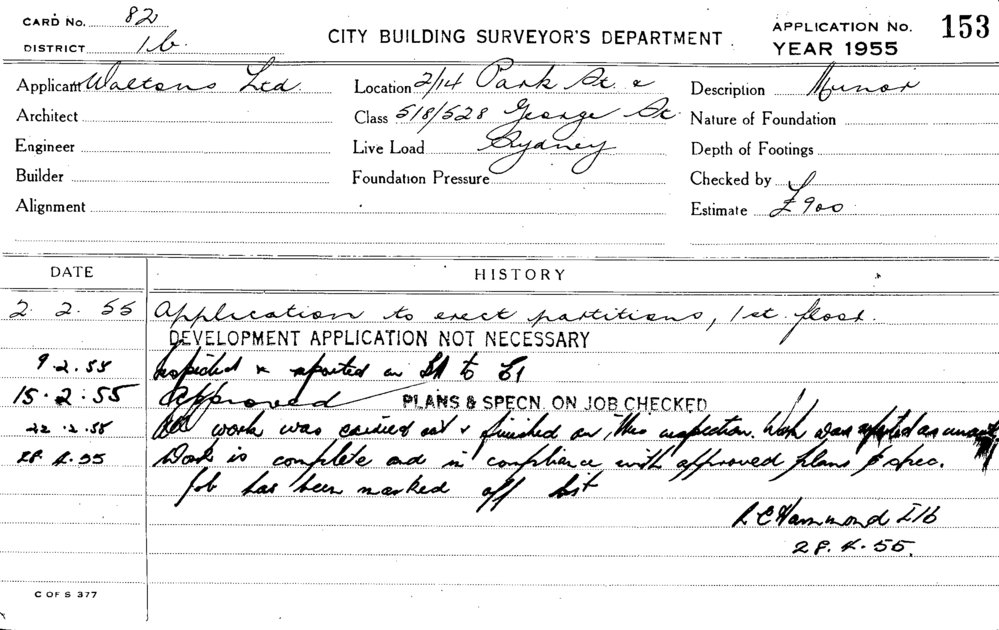 CARD No. 82
DISTRICT 1b.
CITY BUILDING SURVEYOR'S DEPARTMENT
APPLICATION No. 153
YEAR 1955
Applicant Waltons Ltd. Location 2/14 Park St. & Description Minor
Architect Class 518/528 George St. Nature of Foundation
Engineer Live Load Sydney Depth of Footings
Builder Foundation Pressure Checked by
Alignment Estimate £900
DATE HISTORY
2. 2. 55 Application to erect partitions, 1st. floor.
DEVELOPMENT APPLICATION NOT NECESSARY
9.2.55 Inspected & reported on to
15.2.55 Approved PLANS & SPECN. ON JOB CHECKED
22.2.55 All work was carried out & finished on this inspection. Work was reported as
28.4.55 Work is complete and in compliance with approved plans & spec.
Job has been marked off list
R C Hammond I1b
28.4.55.
C OF S 377